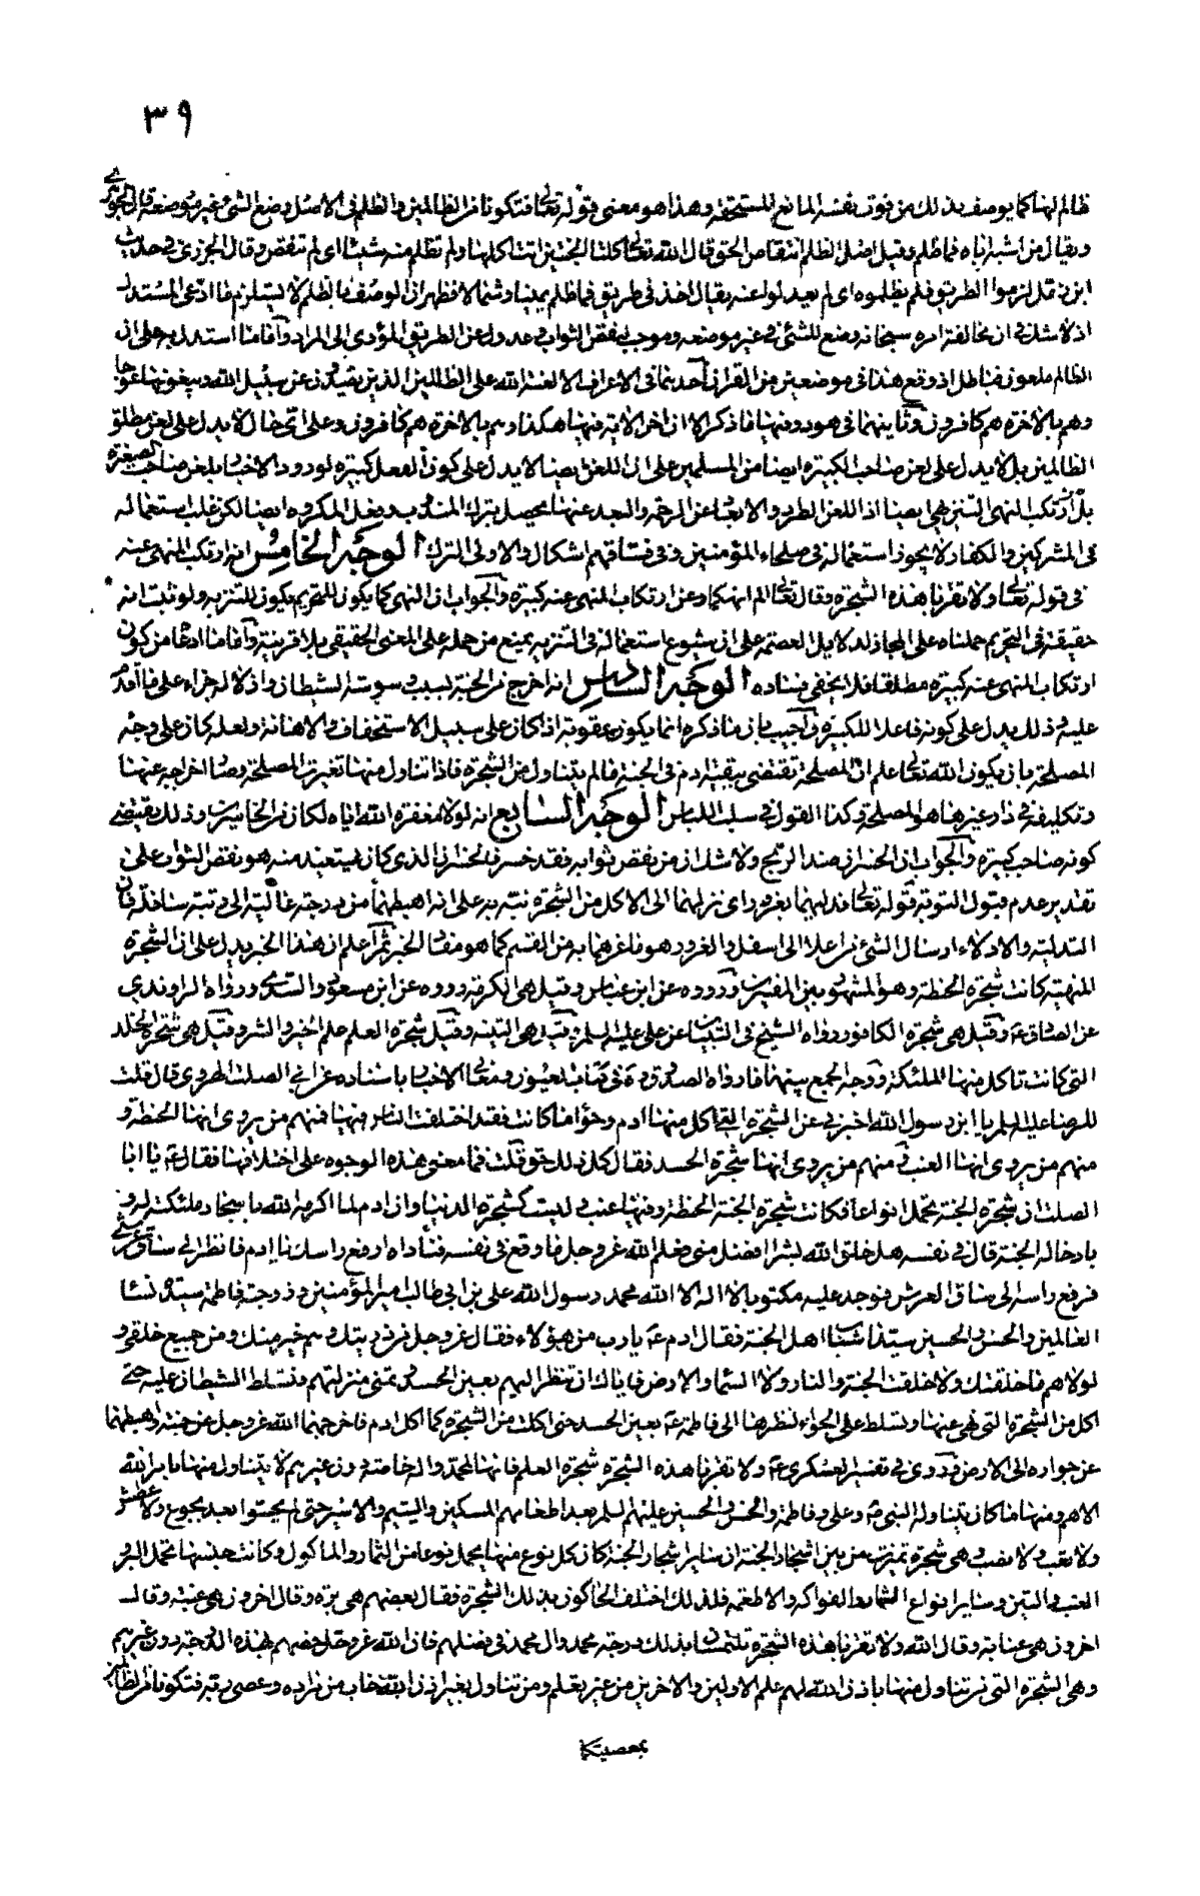 ٣٩
ظالم لها كما يوصف بذلك من فوت نفسه المنافع المستحقة وهذا هو معنى قوله تعالى فتكونا من الظالمين والظلم في الاصل وضع الشئ غير موضعه قال الجوهري
ويقال من اشبه اباه فما ظلم وقيل اصل الظلم انتقاص الحق قال الله تعالى كلتا الجنتين اتت اكلها ولم تظلم منه شيئا اى لم تنقص وقال الجزري في حديث
ابن زمل لزموا الطريق فلم يظلموه اى لم يعدلوا عنه يقال اخذ في طريق فما ظلم يمينا وشمالا فظهر ان الوصف بالظلم لا يستلزم ما ادعى المستدل
اذ لا شك في ان مخالفة امره سبحانه وضع للشئ في غير موضعه وموجب لنقص الثواب وعدول عن الطريق المؤدى الى المراد واما ما استدل به على ان
الظالم ملعون فباطل اذ وقع هذا في موضعين من القران احدهما في الاعراف الا لعنة الله على الظالمين الذين يصدون عن سبيل الله ويبغونها عوجا
وهم بالاخرة هم كافرون وثانيهما في هود ومنها ما ذكر الا ان اخر الاية فيها هكذا وهم بالاخرة هم كافرون وعلى اى حال لا يدل على لعن مطلق
الظالمين بل لا يدل على لعن صاحب الكبيرة ايضا من المسلمين على ان اللعن ايضا لا يدل على كون الفعل كبيرة لورود الاخبار بلعن صاحب الصغيرة
بل ارتكب النهى التنزيهي ايضا اذ اللعن الطرد والابعاد عن الرحمة والبعد عنها يحصل بترك المندوب وفعل المكروه ايضا لكن غلب استعماله
في المشركين والكفار ولا يجوز استعماله في صلحاء المؤمنين وفي فساقهم اشكال والاولى الترك الوجه الخامس انه ارتكب المنهى عنه
في قوله تعالى ولا تقربا هذه الشجرة وقال تعالى الم انهكما وعن ارتكاب المنهى عنه كبيرة والجواب ان النهى كما يكون للتحريم يكون للتنزيه ولو ثبت انه
حقيقة في التحريم حملناه على المجاز لدلايل العصمة على ان شيوع استعماله في التنزيه يمنع من حمله على المعنى الحقيقي بلا قرينة واما ما ادعا من كون
ارتكاب المنهى عنه كبيرة مطلقا فلا يخفى فساده الوجه السادس انه اخرج من الجنة بسبب وسوسة الشيطان واذلاله جزاء على ما اقدم
عليه وذلك يدل على كونه فاعلا للكبيرة واجيب بان ما ذكره انما يكون عقوبة اذا كان على سبيل الاستخفاف والاهانة ولعله كان على وجه
المصلحة بان يكون الله تعالى علم ان المصلحة تقتضى تبقية ادم في الجنة ما لم يتناول من الشجرة فاذا تناول منها تغيرت المصلحة وصار اخراجه عنها
وتكليفه في دار غيرها هو المصلحة وكذا القول في سلب اللباس الوجه السابع انه لولا مغفرة الله اياه لكان من الخاسرين وذلك يقتضى
كونه صاحب كبيرة والجواب ان الخسران ضد الربح ولا شك ان من نقص ثوابه فقد خسر فالخسران الذي كان يستعيذ منه هو نقص الثواب على
تقدير عدم قبول التوبة قوله تعالى فدليهما بغرور اى نزلهما الى الاكل من الشجرة نبه به على انه اهبطهما من درجة عالية الى رتبة سافلة فان
التدلية والادلاء ارسال الشئ من اعلا الى اسفل والغرور هو ما غرهما به من القسم كما هو مفاد الخبر ثم اعلم ان هذا الخبر يدل على ان الشجرة
المنهية كانت شجرة الحنطة وهو المشهور بين المفسرين ورووه عن ابن عباس وقيل هى الكرمة ورووه عن ابن مسعود والسدى ورواه الراوندي
عن الصادق ع وقيل هى شجرة الكافور ورواه الشيخ في التبيان عن على عليه السلام وقيل هى التينة وقيل شجرة العلم علم الخير والشر وقيل هى شجرة الخلد
التى كانت تاكل منها الملئكة ووجه الجمع بينها ما رواه الصدوق ره في كتاب العيون ومعاني الاخبار باسناده عن ابي الصلت الهروى قال قلت
للرضا عليه السلم يا ابن رسول الله اخبرني عن الشجرة التى اكل منها ادم وحوا ما كانت فقد اختلفت الناس فيها فمنهم من يروى انها الحنطة و
منهم من يروى انها العنب ومنهم من يروى انها شجرة الحسد فقال كل ذلك حق قلت فما معنى هذه الوجوه على اختلافها فقال ع يا ابا
الصلت ان شجرة الجنة تحمل انواعا فكانت شجرة الجنة الحنطة وفيها عنب وليست كشجرة الدنيا وان ادم لما اكرمه الله باسجاد ملئكته له و
بادخاله الجنة قال في نفسه هل خلق الله بشرا افضل مني فعلم الله عز وجل ما وقع في نفسه فناداه ارفع راسك يا ادم فانظر الى ساق عرشى
فرفع راسه الى ساق العرش فوجد عليه مكتوبا لا اله الا الله محمد رسول الله على بن ابي طالب امير المؤمنين وزوجته فاطمة سيدة نساء
العالمين والحسن والحسين سيدا شباب اهل الجنة فقال ادم ع يا رب من هؤلاء فقال عز وجل من ذريتك وهم خير منك ومن جميع خلقى و
لولا هم ما خلقتك ولا خلقت الجنة والنار ولا السماء والارض فاياك ان تنظر اليهم بعين الحسد وتمنى منزلتهم فتسلط الشيطان عليه حتى
اكل من الشجرة التى نهى عنها وتسلط على حواء لنظرها الى فاطمة ع بعين الحسد حتى اكلت من الشجرة كما اكل ادم فاخرجهما الله عز وجل عن جنته واهبطهما
عن جواره الى الارض وروى في تفسير العسكري ع ولا تقربا هذه الشجرة شجرة العلم فانها لمحمد واله خاصة دون غيرهم لا يتناول منها بامر الله
الا هم ومنها ما كان يتناوله النبي ص وعلى وفاطمة والحسن والحسين عليهم السلم بعد اطعامهم المسكين واليتيم والاسير حتى لم يحسوا بعد بجوع ولا عطش
ولا تعب ولا نصب وهى شجرة تميزت من بين اشجار الجنة ان سائر اشجار الجنة كان كل نوع منها يحمل نوعا من الثمار والماكول وكانت جنسها تحمل البر و
العنب والتين وسائر انواع الثمار والفواكه والاطعمة فلذلك اختلف الحاكون بذلك الشجرة فقال بعضهم هى برة وقال اخرون هى عنبة وقال
اخرون هى عنابة وقال الله ولا تقربا هذه الشجرة تلتمسان بذلك درجة محمد وال محمد في فضلهم فان الله عز وجل خصهم بهذه الدرجة دون غيرهم
وهى الشجرة التى من تناول منها باذن الله الهم علم الاولين والاخرين من غير تعلم ومن تناول بغير اذن الله خاب من مراده وعصى ربه فتكونا من الظالمين
بمعصيتكما